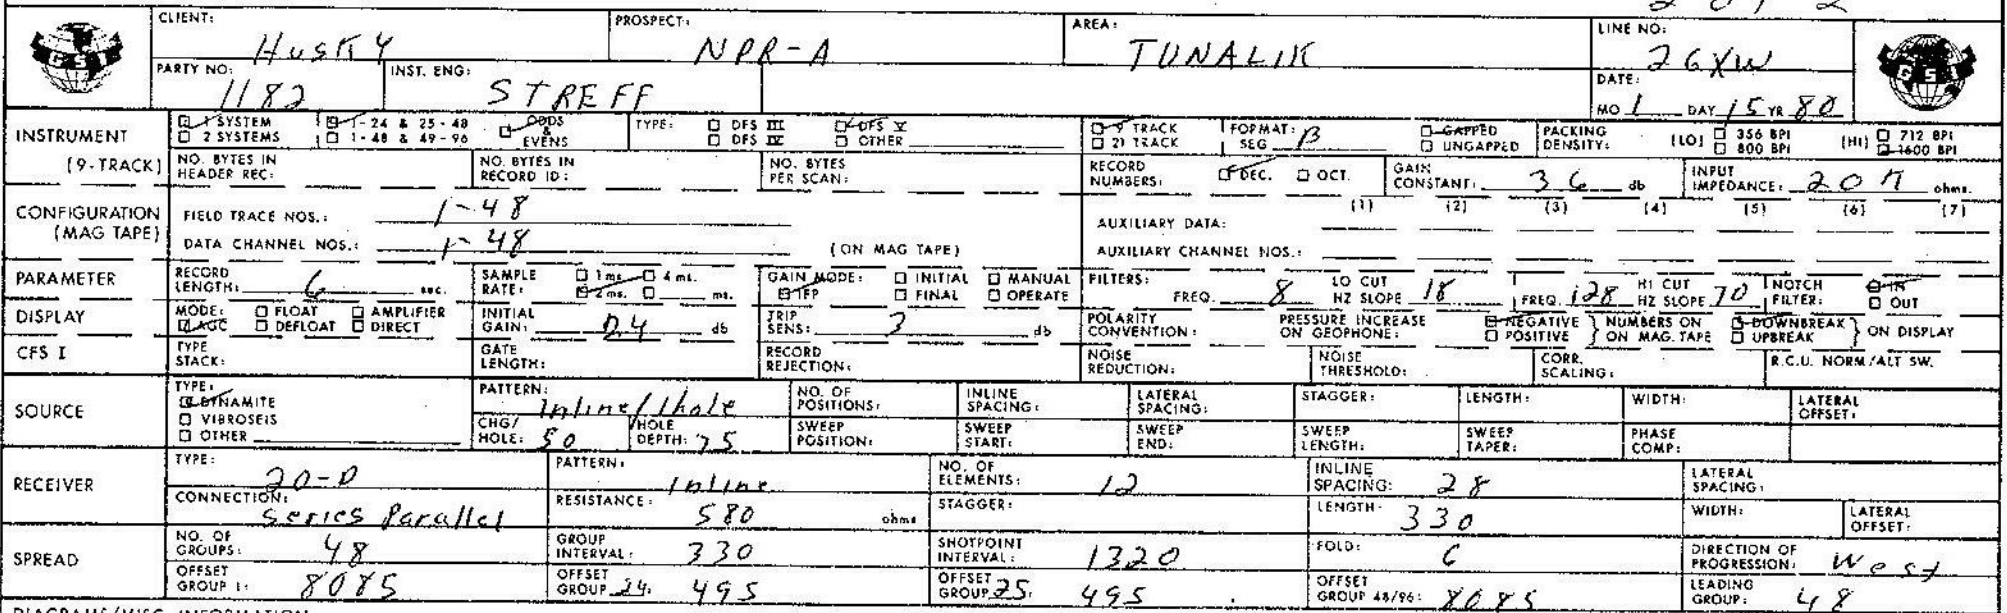 CLIENT: Husky PROSPECT: NPR-A AREA: TUNALIK LINE NO: 26XW
GSI GSI
PARTY NO: 1182 INST. ENG: STREFF DATE: MO 1 DAY 15 YR 80
INSTRUMENT 1 SYSTEM 1-24 & 25-48 ODDS & EVENS TYPE: DFS III DFS V 9 TRACK FORMAT: SEG B GAPPED PACKING DENSITY: (LO) 356 BPI (HI) 712 BPI
2 SYSTEMS 1-48 & 49-96 DFS IV OTHER 21 TRACK UNGAPPED 800 BPI 1600 BPI
(9-TRACK) NO. BYTES IN HEADER REC: NO. BYTES IN RECORD ID: NO. BYTES PER SCAN: RECORD NUMBERS: DEC. OCT. GAIN CONSTANT: 36 db INPUT IMPEDANCE: 20 K ohms.
CONFIGURATION (MAG TAPE) FIELD TRACE NOS.: 1-48 AUXILIARY DATA: (1) (2) (3) (4) (5) (6) (7)
DATA CHANNEL NOS.: 1-48 (ON MAG TAPE) AUXILIARY CHANNEL NOS.:
PARAMETER RECORD LENGTH: 6 sec. SAMPLE RATE: 1 ms. 4 ms. 2 ms. ms. GAIN MODE: INITIAL MANUAL IFP FINAL OPERATE FILTERS: FREQ. 8 LO CUT HZ SLOPE 18 FREQ. 128 HI CUT HZ SLOPE 70 NOTCH FILTER: IN OUT
DISPLAY MODE: FLOAT AMPLIFIER AGC DEFLOAT DIRECT INITIAL GAIN: 24 db TRIP SENS: 3 db POLARITY CONVENTION: PRESSURE INCREASE ON GEOPHONE: NEGATIVE POSITIVE NUMBERS ON MAG. TAPE DOWNBREAK UPBREAK ON DISPLAY
CFS I TYPE STACK: GATE LENGTH: RECORD REJECTION: NOISE REDUCTION: NOISE THRESHOLD: CORR. SCALING: R.C.U. NORM/ALT SW.
SOURCE TYPE: DYNAMITE VIBROSEIS OTHER PATTERN: Inline/1hole NO. OF POSITIONS: INLINE SPACING: LATERAL SPACING: STAGGER: LENGTH: WIDTH: LATERAL OFFSET:
CHG/HOLE: 50 HOLE DEPTH: 75 SWEEP POSITION: SWEEP START: SWEEP END: SWEEP LENGTH: SWEEP TAPER: PHASE COMP:
RECEIVER TYPE: 20-D PATTERN: Inline NO. OF ELEMENTS: 12 INLINE SPACING: 28 LATERAL SPACING:
CONNECTION: Series Parallel RESISTANCE: 580 ohms STAGGER: LENGTH: 330 WIDTH: LATERAL OFFSET:
SPREAD NO. OF GROUPS: 48 GROUP INTERVAL: 330 SHOTPOINT INTERVAL: 1320 FOLD: 6 DIRECTION OF PROGRESSION: West
OFFSET GROUP 1: 8085 OFFSET GROUP 24: 495 OFFSET GROUP 25: 495 OFFSET GROUP 48/96: 8085 LEADING GROUP: 48